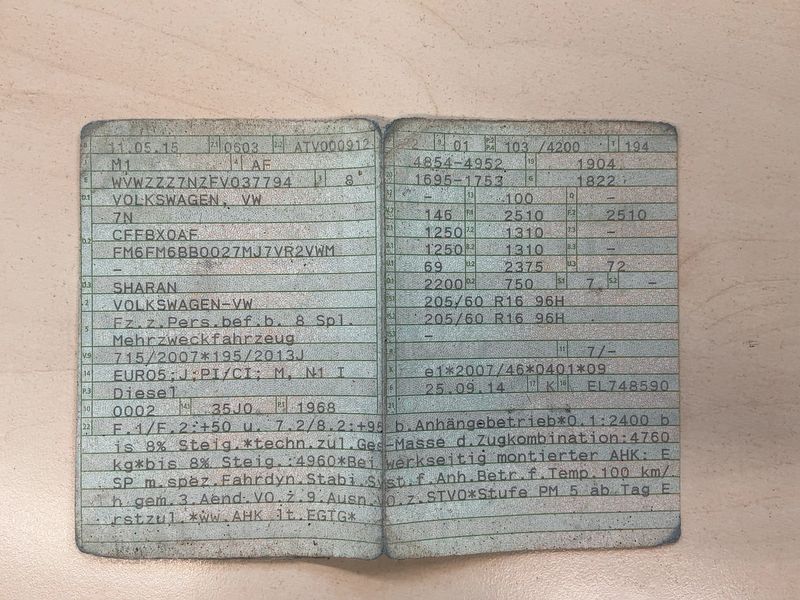 11.05.15 0603 ATV000912
M1 AF
WVWZZZ7NZFV037794 8
VOLKSWAGEN, VW
7N
CFFBX0AF
FM6FM6BB0027MJ7VR2VWM
–
SHARAN
VOLKSWAGEN-VW
Fz.z.Pers.bef.b. 8 Spl.
Mehrzweckfahrzeug
715/2007*195/2013J
EURO5;J;PI/CI; M, N1 I
Diesel
0002 35J0 1968
01 103 /4200 194
4854-4952 1904
1695-1753 1822
– 100 –
146 2510 2510
1250 1310 –
1250 1310 –
69 2375 72
2200 750 7 –
205/60 R16 96H
205/60 R16 96H
–
7/–
e1*2007/46*0401*09
25.09.14 K EL748590
F.1/F.2:+50 u. 7.2/8.2:+95 b.Anhängebetrieb*O.1:2400 b
is 8% Steig.*techn.zul.Ges-Masse d.Zugkombination:4760
kg*bis 8% Steig.:4960*Bei werkseitig montierter AHK: E
SP m.spez.Fahrdyn.Stabi.Syst.f.Anh.Betr.f.Temp.100 km/
h gem.3.Aend.VO.z.9.Ausn.VO.z.STVO*Stufe PM 5 ab Tag E
rstzul.*ww.AHK lt.EGTG*